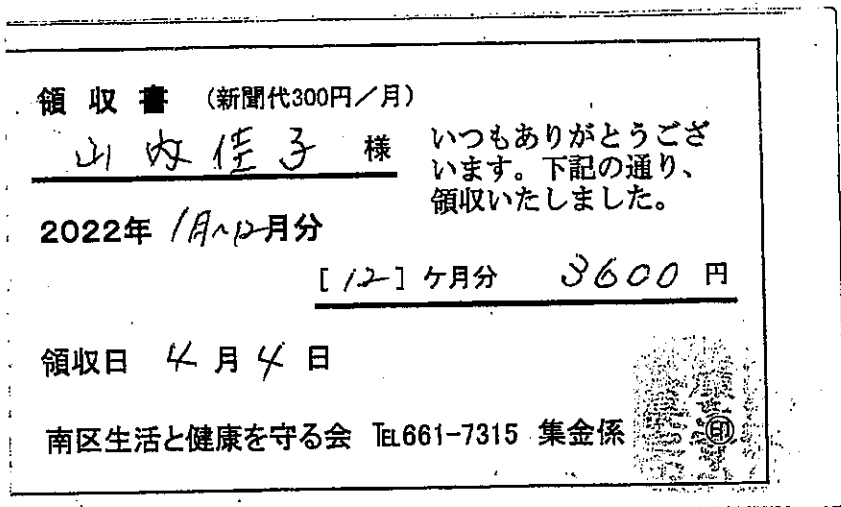 領収書 (新聞代300円/月)
山内佳子 様
いつもありがとうござ
います。下記の通り、
領収いたしました。
2022年 1月~12月分
[12] ケ月分 3600 円
領収日 4月4日
南区生活と健康を守る会 ℡661-7315 集金係 ㊞